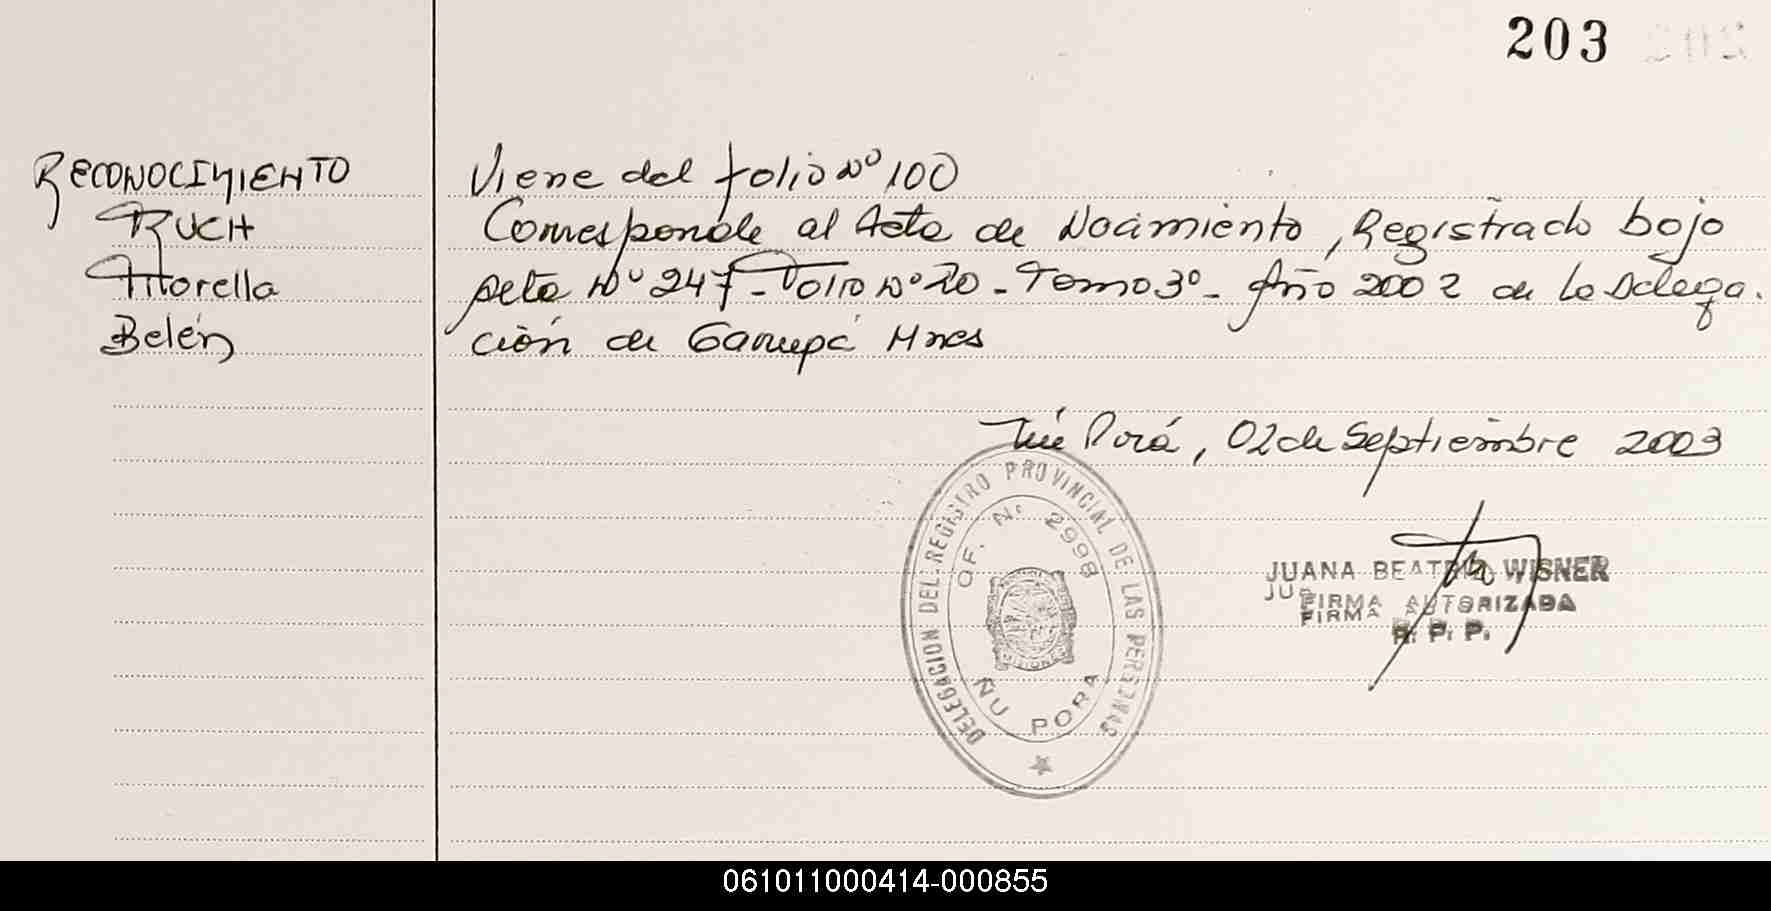 203
RECONOCIMIENTO
RUCH
Fiorella
Belén
Viene del folio Nº 100
Corresponde al Acta de Nacimiento, Registrado bajo
Acta Nº 247 - Folio Nº 20 - Tomo 3º - Año 2002 de la Delega.
ción de Garupá Mnes
Ñu Porá, 02 de Septiembre 2003
DELEGACION DEL REGISTRO PROVINCIAL DE LAS PERSONAS
OF. Nº 2998
MISIONES
ÑU PORA
JUANA BEATRIZ WISNER
FIRMA AUTORIZADA
FIRMA
R. P. P.
061011000414-000855